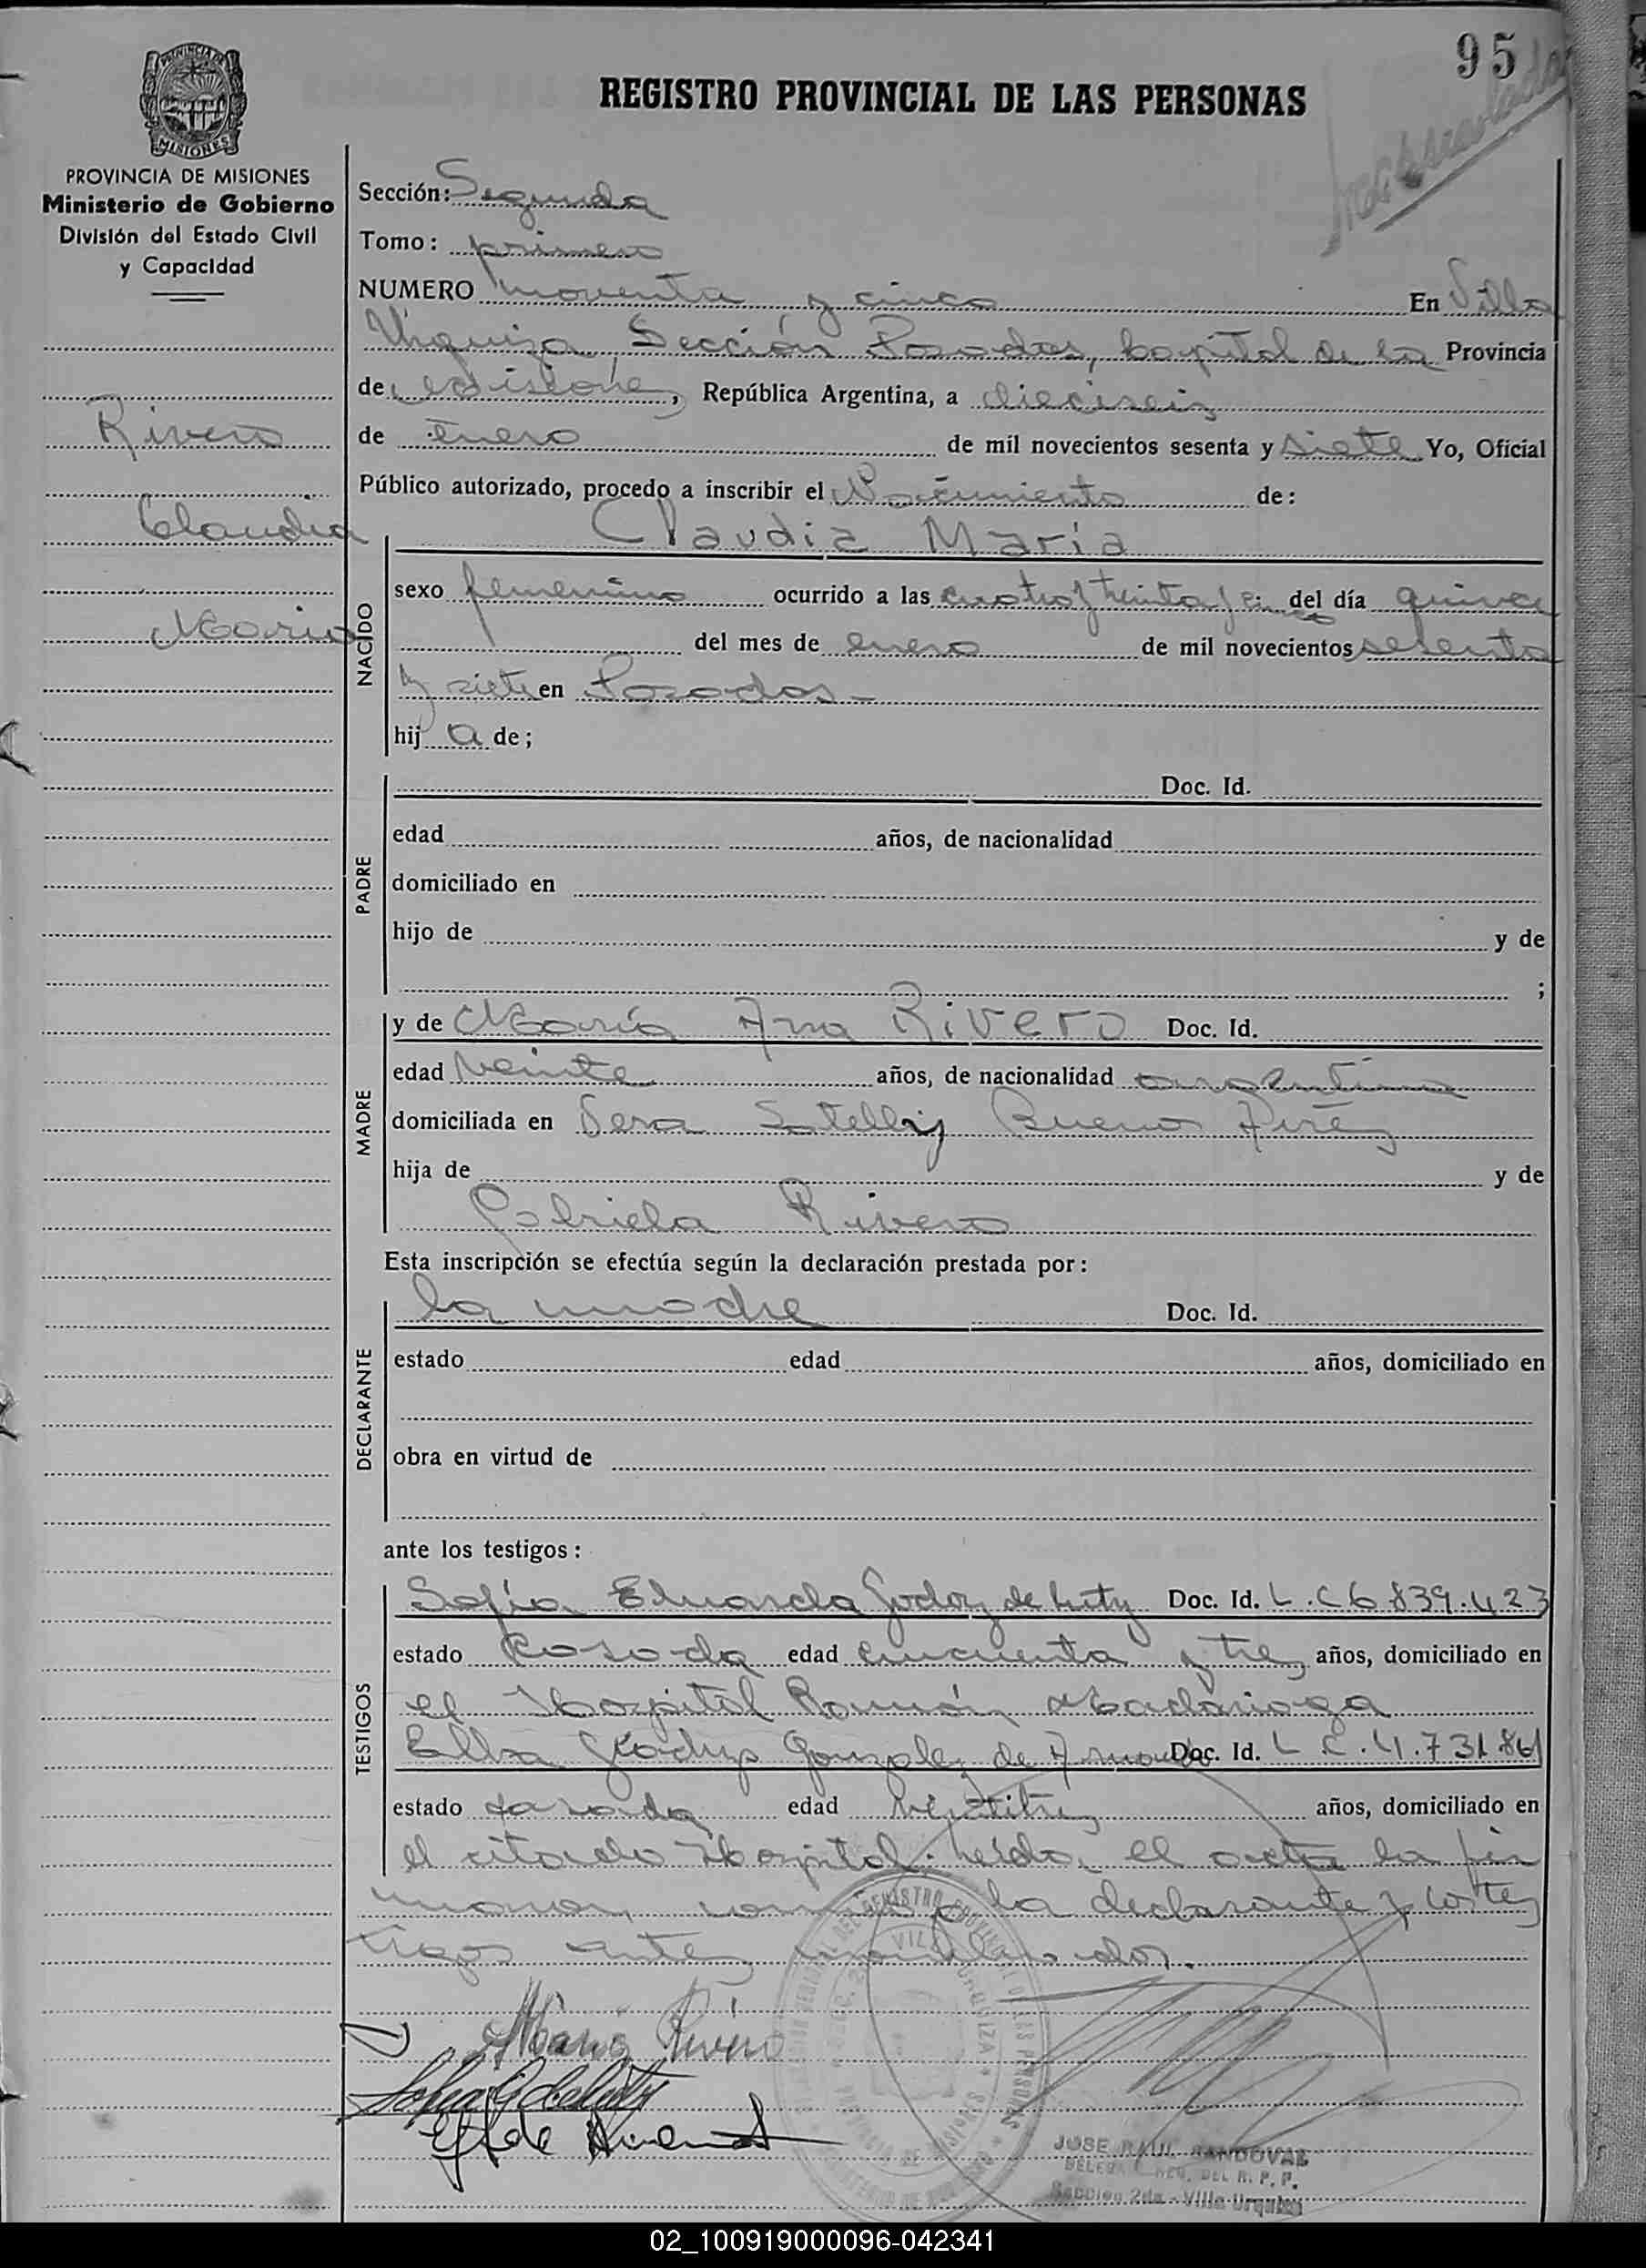 95
REGISTRO PROVINCIAL DE LAS PERSONAS
MISIONES
PROVINCIA DE MISIONES
Ministerio de Gobierno
División del Estado Civil
y Capacidad
Rivero
Claudia
Maria
Sección: Segunda
Tomo: primero
NUMERO noventa y cinco En Villa
Urquiza, Sección Posadas, Capital de la Provincia
de Misiones, República Argentina, a dieciseis
de enero de mil novecientos sesenta y siete Yo, Oficial
Público autorizado, procedo a inscribir el Nacimiento de:
Claudia María
NACIDO
sexo femenino ocurrido a las cuatro y treinta del día quince
del mes de enero de mil novecientos sesenta
y siete en Posadas-
hij a de;
PADRE
Doc. Id.
edad años, de nacionalidad
domiciliado en
hijo de y de
;
MADRE
y de María Ana Rivero Doc. Id.
edad veinte años, de nacionalidad argentina
domiciliada en Buenos Aires
hija de y de
Gabriela Rivero
Esta inscripción se efectúa según la declaración prestada por:
DECLARANTE
la madre Doc. Id.
estado edad años, domiciliado en
obra en virtud de
ante los testigos:
TESTIGOS
Sofía Eduarda Godoy de Doc. Id. L.C 6.839.423
estado casada edad cincuenta y tres años, domiciliado en
el Hospital Ramón Madariaga
Elba Gladys Gonzalez de Doc. Id. L.C.4.731861
estado casada edad veintitres años, domiciliado en
el citado Hospital. Leída el acta la fir
man conmigo la declarante y los tes
tigos antes mencionados.
María Rivero
JOSE RAUL SANDOVAL
DELEG. REG. DEL R. P. P.
Sección 2da - Villa Urquiza
02_100919000096-042341